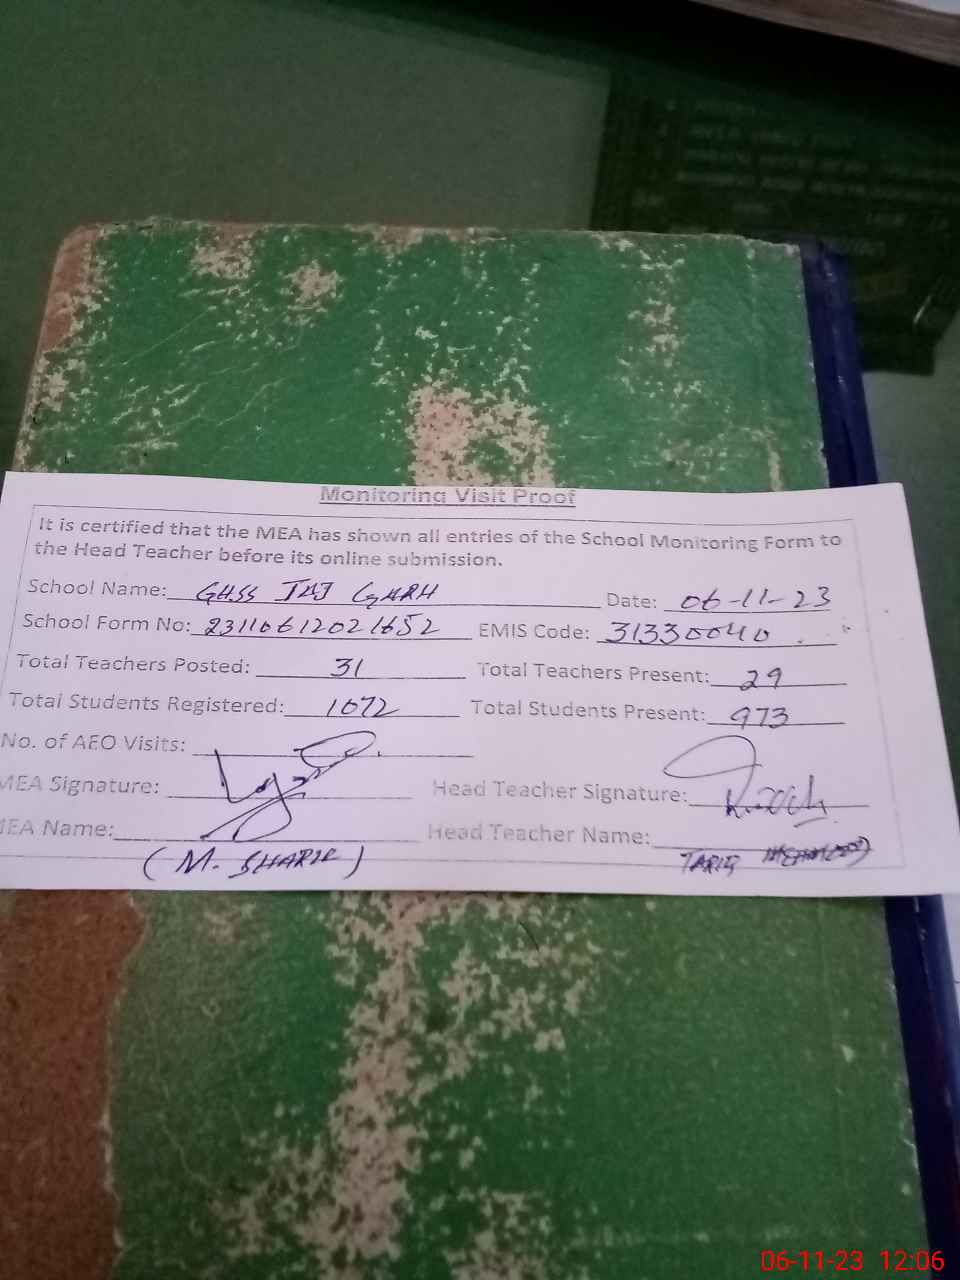 Monitoring Visit Proof
It is certified that the MEA has shown all entries of the School Monitoring Form to
the Head Teacher before its online submission.
School Name: GHSS TAJ GARH Date: 06-11-23
School Form No: 23110612021652 EMIS Code: 31330040
Total Teachers Posted: 31 Total Teachers Present: 29
Total Students Registered: 1072 Total Students Present: 973
No. of AEO Visits:
MEA Signature: Head Teacher Signature:
MEA Name: Head Teacher Name:
(M. SHARIF) TARIQ
06-11-23 12:06